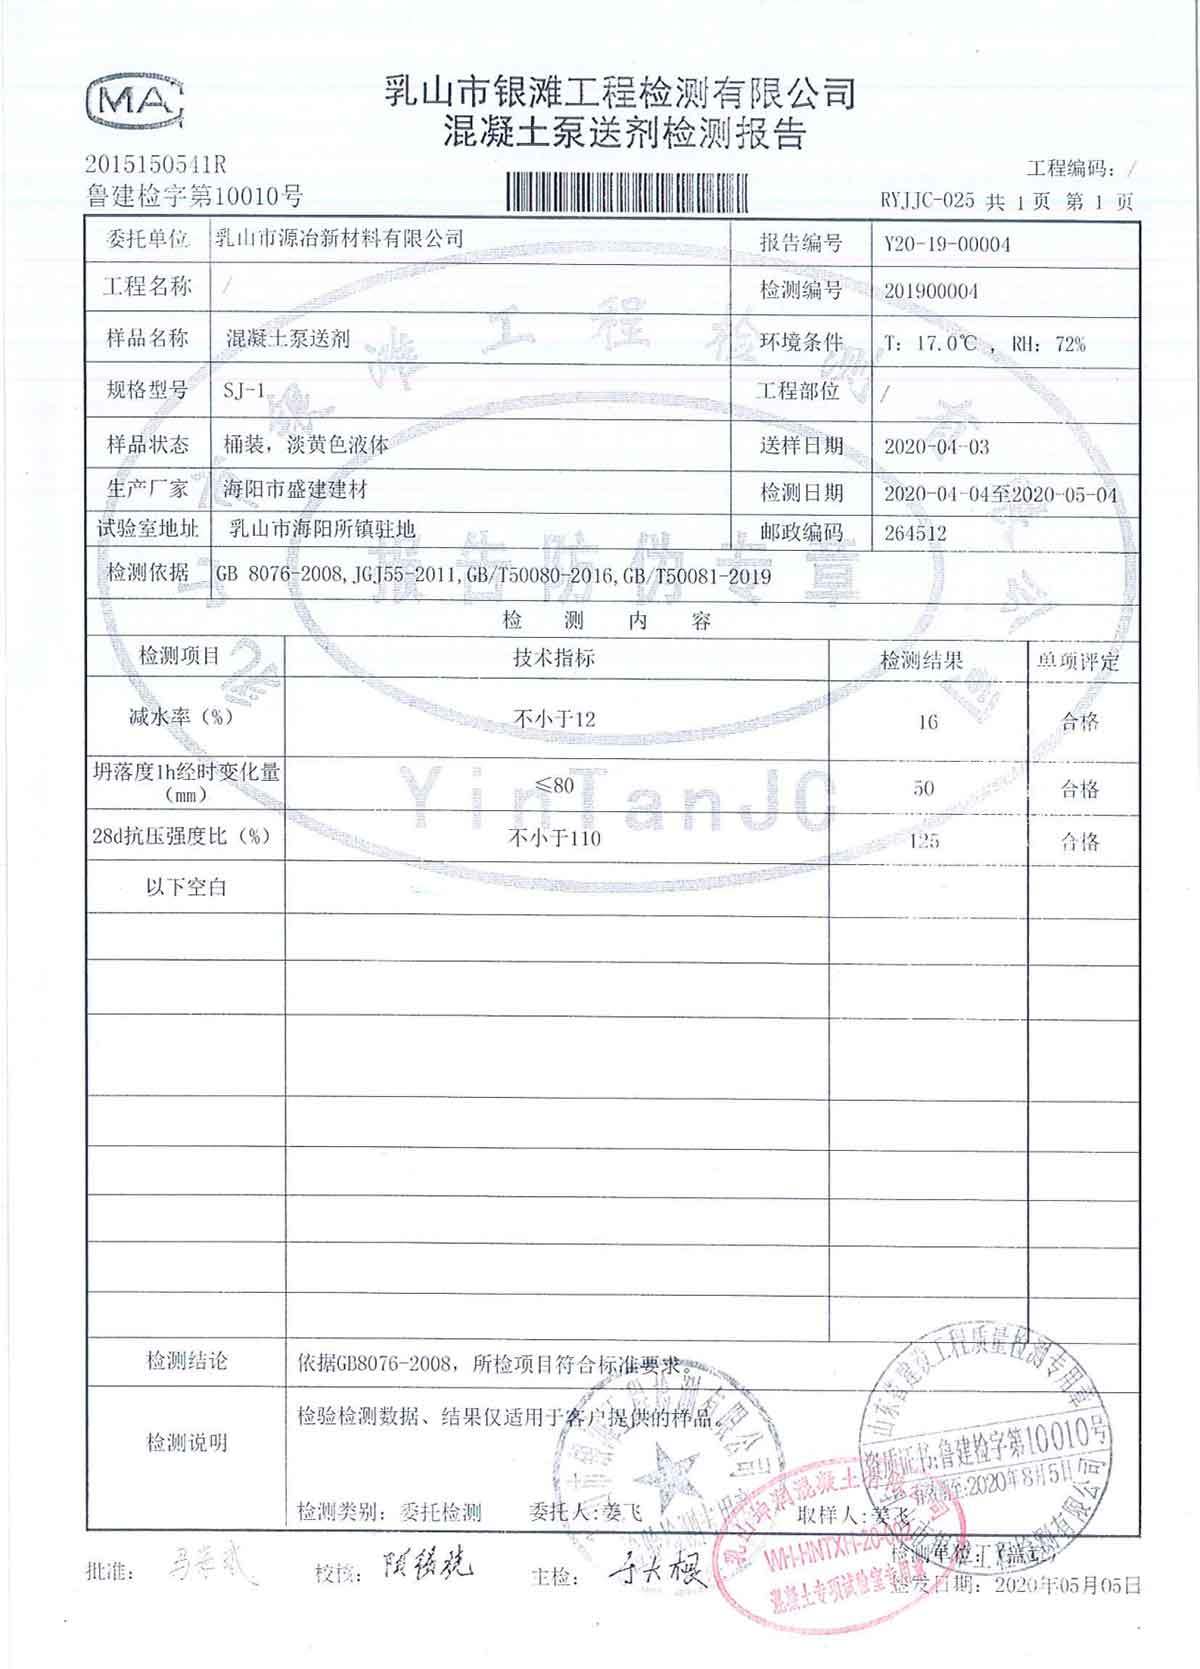 CMA
乳山市银滩工程检测有限公司
混凝土泵送剂检测报告
2015150541R
鲁建检字第10010号
工程编码: /
RYJJC-025 共 1 页 第 1 页
委托单位 乳山市源冶新材料有限公司 报告编号 Y20-19-00004
工程名称 / 检测编号 201900004
样品名称 混凝土泵送剂 环境条件 T: 17.0℃ , RH: 72%
规格型号 SJ-1 工程部位 /
样品状态 桶装，淡黄色液体 送样日期 2020-04-03
生产厂家 海阳市盛建建材 检测日期 2020-04-04至2020-05-04
试验室地址 乳山市海阳所镇驻地 邮政编码 264512
检测依据 GB 8076-2008,JGJ55-2011,GB/T50080-2016,GB/T50081-2019
检 测 内 容
检测项目 技术指标 检测结果 单项评定
减水率（%） 不小于12 16 合格
坍落度1h经时变化量（mm） ≤80 50 合格
28d抗压强度比（%） 不小于110 125 合格
以下空白
报告防伪专章
YinTanJC
检测结论 依据GB8076-2008，所检项目符合标准要求。
检测说明 检验检测数据、结果仅适用于客户提供的样品。
检测类别: 委托检测 委托人:姜飞 取样人:姜飞
山东省建设工程质量检测专用章
资质证书:鲁建检字第10010号
有效期至:2020年8月5日
WH-HNTXH-20-002
混凝土专项试验室专用章
批准: 校核: 主检: 于大根 检测单位:(盖章)
签发日期: 2020年05月05日